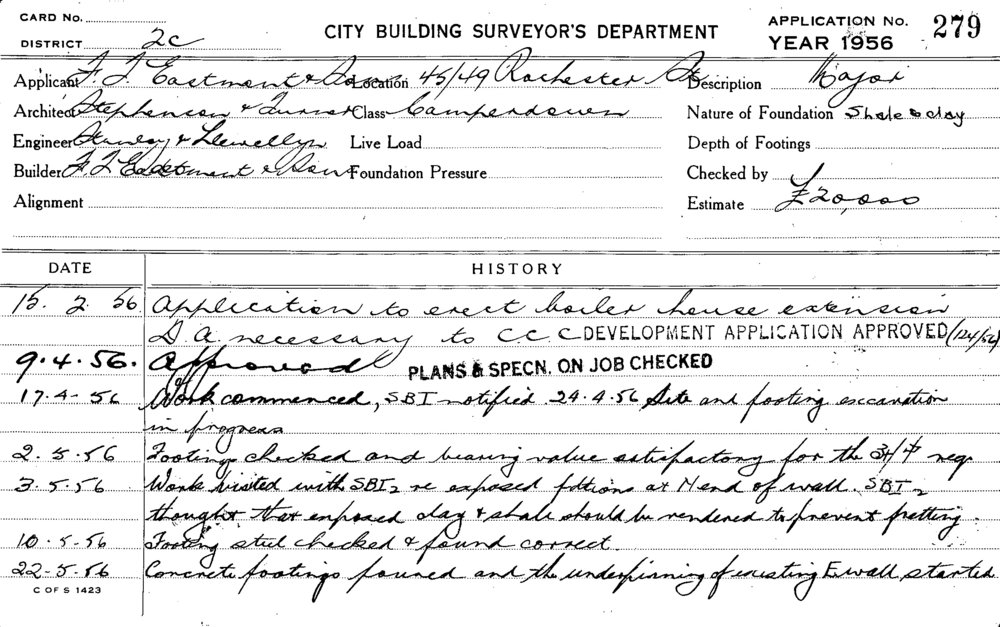 CARD No.
DISTRICT 2c
CITY BUILDING SURVEYOR'S DEPARTMENT
APPLICATION No. 279
YEAR 1956
Applicant F. J. Eastment & Sons Location 45/49 Rochester St Description Major
Architect Stephenson & Turner Class Camperdown Nature of Foundation Shale & clay
Engineer Stanley & Llewellyn Live Load Depth of Footings
Builder F J Eastment & Sons Foundation Pressure Checked by
Alignment Estimate £20,000
DATE HISTORY
15. 2. 56 Application to erect boiler house extension
D A necessary to C C C DEVELOPMENT APPLICATION APPROVED (124/56)
9.4.56. Approved PLANS & SPECN. ON JOB CHECKED
17.4-56 Work commenced, SBI notified 24.4.56 Site and footing excavation
in progress
2.5.56 Footings checked and bearing value satisfactory for the req.
3.5.56 Work visited with SBI2 re exposed fdtions at N end of wall. SBI2
thought that exposed clay & shale should be rendered to prevent fretting.
10-5-56 Footing steel checked & found correct.
22-5-56 Concrete footings poured and the underpinning of existing E wall started
C OF S 1423